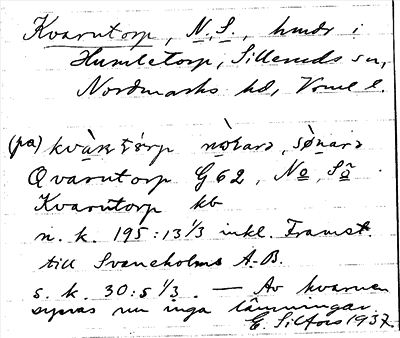 Kvarntorp, N. S., hmdr i
Humletorp, Silleruds sn,
Nordmarks hd, Vrml l.
(på) kvὰn tɷrp nɷ̀ɷrə, sɷ̀nərə
Qvarntorp G 62, No, Sö
Kvarntorp kb
n. k. 195:13 1/3 inkl. Framst.
till Svaneholms A.-B.
s. k. 30:5 1/3. — Av kvarnen
synas nu inga lämningar.
E. Silfors 1937.